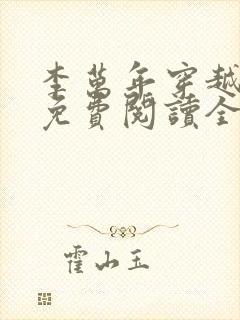 李萬年穿越
免費閱讀全
霍山玉